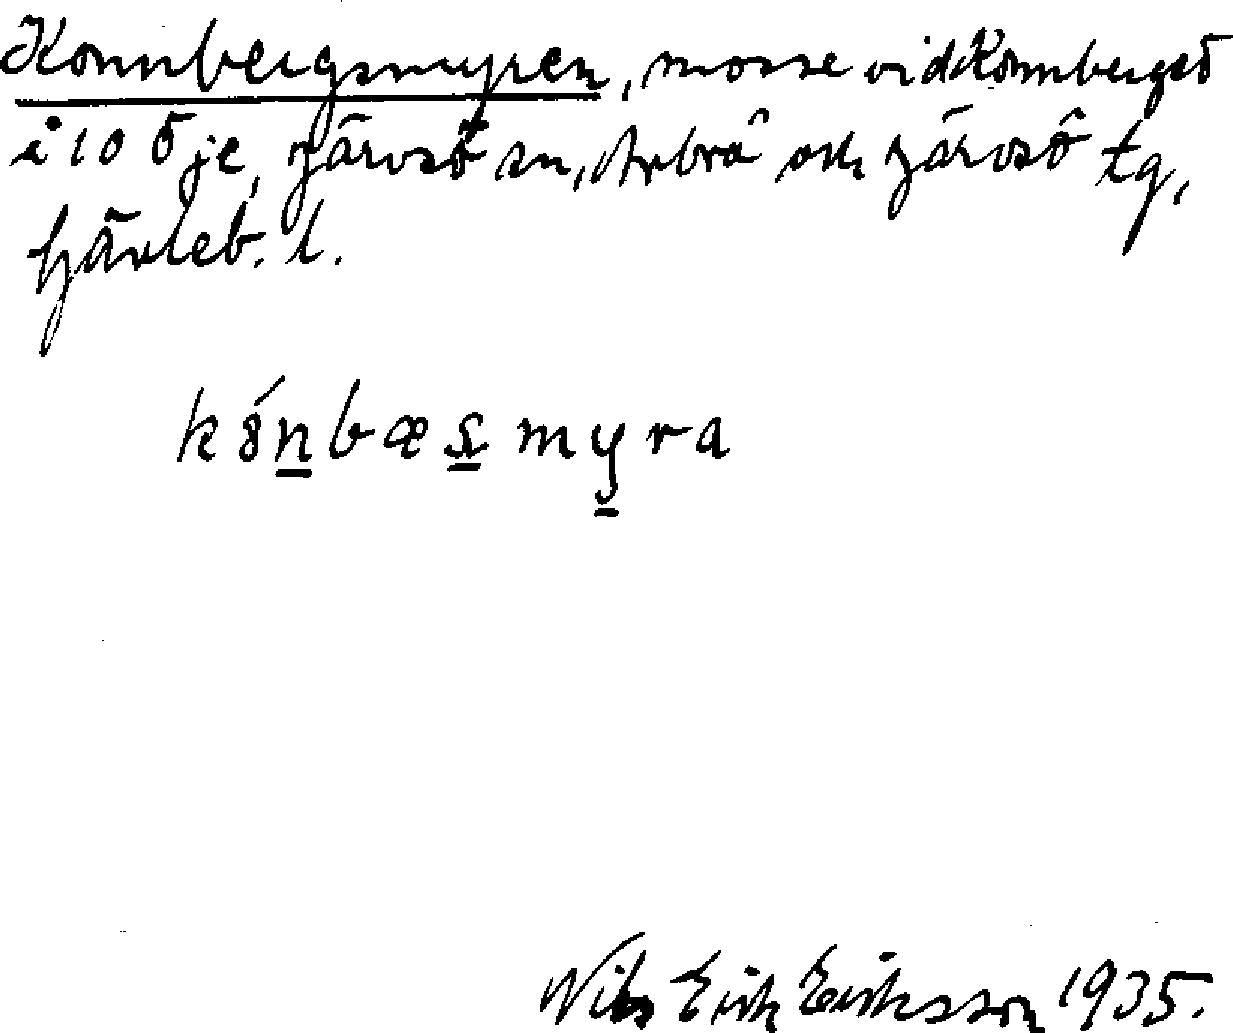 Konnbergsmyren, mosse vid Konnberget
i 10 Öje, Järvsö sn, Arbrå och Järvsö tg,
Gävleb. l.
kȣ́nbæsmyra
Nils Erik Eriksson 1935.